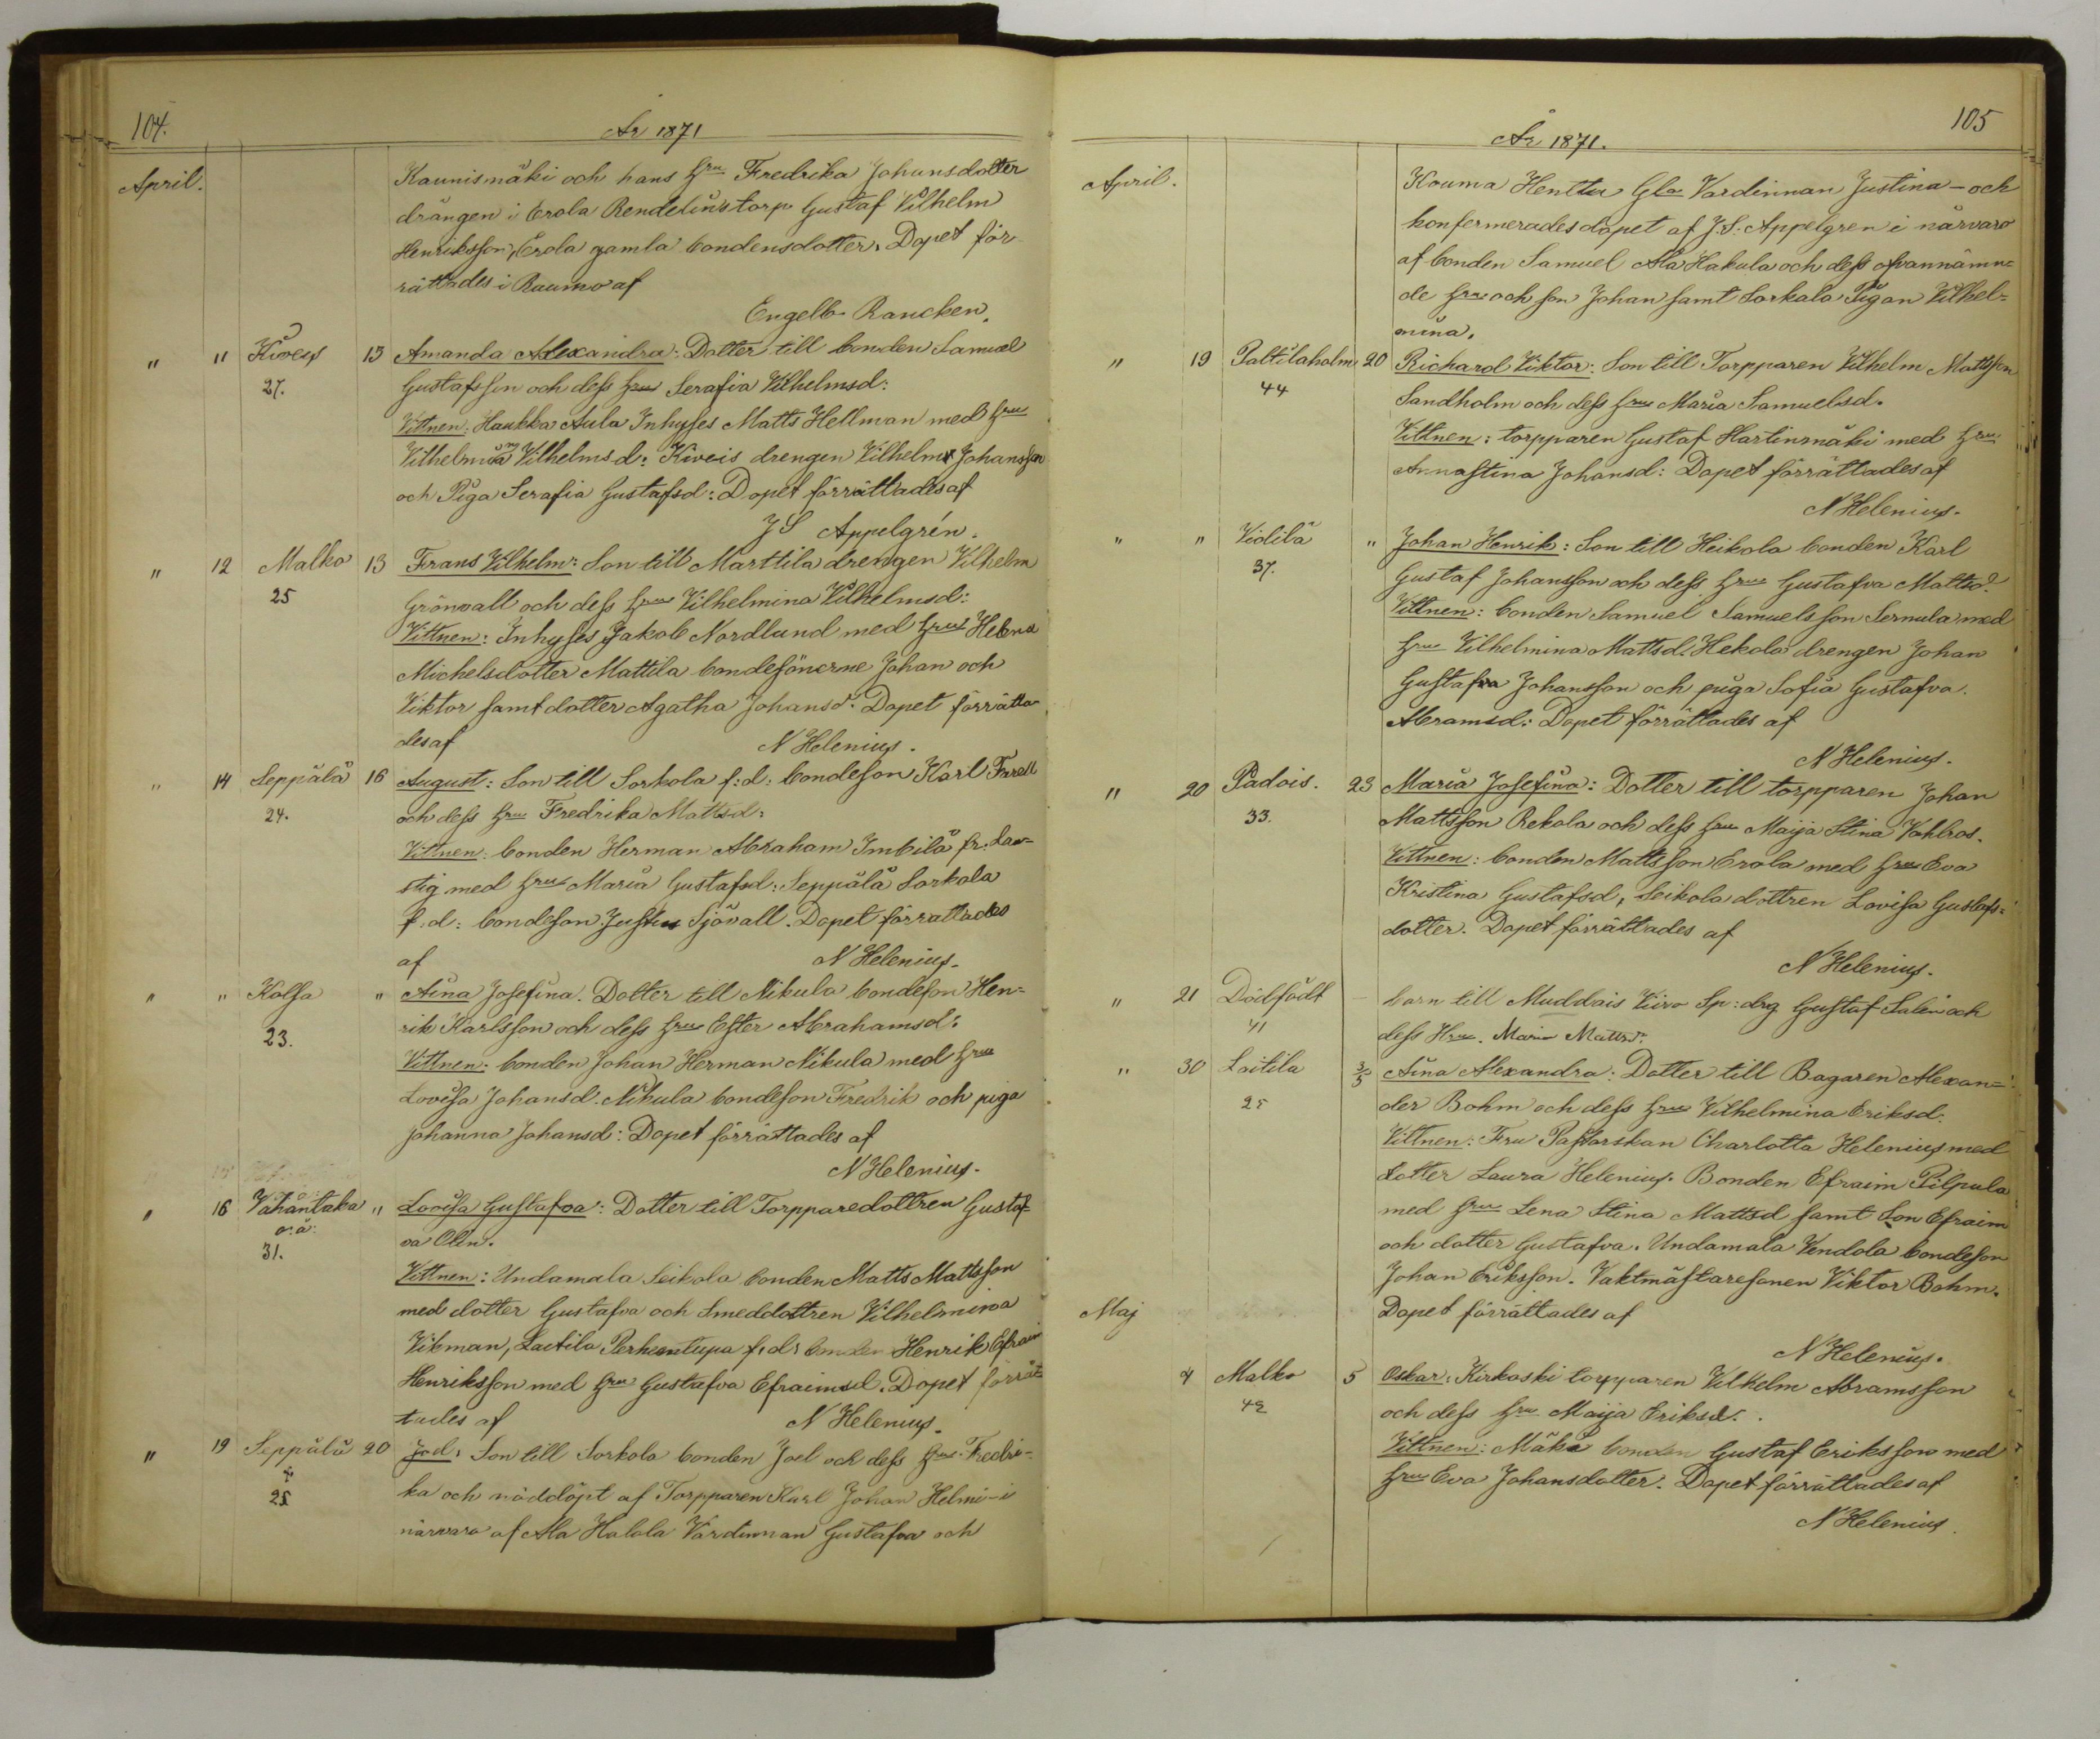 104.
År 1871
April.
Kaunismäki och hans Hru Fredrika Johansdotter
drängen i Erola Rendelins torp Gustaf Vilhelm
Henriksson, Erola gamla bondensdotter. Dopet för
rättades i Raumo af
Engelb. Rancken.
" " Kiveis 13 Amanda Alexandra: Dotter till bonden Samuel
27. Gustafsson och dess Hru Serafia Vilhelmsd:
Vittnen: Haukka Aula Inhyses Matts Hellman med Hru
Vilhelmina Vilhelmsd: Kiveis drengen Vilhelm Johansson
och Piga Serafia Gustafsd: Dopet förrättades af
J S Appelgrén.
" 12 Malko 13 Frans Vilhelm: Son till Marttila drengen Vilhelm
25 Grönvall och dess Hru Vilhelmina Vilhelmsd:
Vittnen: Inhyses Jakob Nordlund med Hru Helena
Michelsdotter Mattila bondesönerne Johan och
Viktor samt dotter Agatha Johansd: Dopet förrätta
des af N Helenius.
" 14 Seppälä 16 August: Son till Sorkola f:d: bondeson Karl
24. och dess Hru Fredrika Mattsd:
Vittnen: bonden Herman Abraham Imbilä fr. Lav-
stig med Hru Maria Gustafsd: Seppälä Sorkola
f.d: bondeson Justus Sjövall. Dopet förrattades
af N Helenius.
" " Kolsa " Aina Josefina. Dotter till Nikula bondeson Hen=
23. rik Karlsson och dess Hru Ester Abrahamsd:
Vittnen: bonden Johan Herman Nikula med Hru
Lovisa Johansd. Nikula bondeson Fredrik och piga
Johanna Johansd: Dopet förrättades af
N Helenius.
" 16 Vahantaka " Lovisa Gustafva: Dotter till Torpparedottren Gustaf-
o.ä: va Olin.
31.
Vittnen: Undamala Seikola bonden Matts Mattsson
med dotter Gustafva och Smeddottren Vilhelmina
Vikman, Laitila Perheentupa f.d: bonden Henrik Efraim
Henriksson med Hru Gustafva Efraimsd. Dopet förrät
tades af N Helenius.
" 19 Seppälä 20 Joel, Son till Sorkola bonden Joel och dess Hru Fredri-
25 ka och nöddöpt af Torpparen Karl Johan Helmi-i
närvaro af Ala Halola Värdinnan Gustafva och
105
År 1871.
April.
Kouma Henttu Gla Vardinnan Justina - och
konfermerades döpet af J.S. Appelgren i närvaro
af bonden Samuel Ala Hakula och dess ofvannämn=
de Hru och son Johan samt Sorkala Pigan Vilhel=
mina.
" 19 Paltilaholm 20 Richard Viktor: Son till Torpparen Vilhelm Mattsson
44 Sandholm och dess Hru Maria Samuelsd.
Vittnen: torpparen Gustaf Hartinmäki med Hru
Annastina Johansd: Dopet förrättades af
N Helenius.
" " Vidilä " Johan Henrik: Son till Heikola bonden Karl
37. Gustaf Johansson och dess Hru Gustafva Mattsd.
Vittnen: bonden Samuel Samuelsson Sernula med
Hru Vilhelmina Mattsd. Hekola drengen Johan
Gustafva Johansson och piga Sofia Gustafva
Abramsd: Dopet förrättades af
N Helenius.
" 20 Padois. 23 Maria Josefina: Dotter till torpparen Johan
33. Mattsson Rekola och dess Hru Maija Stina Vahlros.
Vittnen: bonden Mattsson Erola med Hru Eva
Kristina Gustafsd, Seikola dottren Lovisa Gustafs=
dotter. Dopet förrättades af
N Helenius.
" 21 Dödfödt - barn till Muddais Viiro Sp: drg Gustaf Salen och
41 dess Hru. Maria Mattsd:
" 30 Laitila 3/5 Aina Alexandra: Dotter till Bagaren Alexan=
25 der Bohm och dess Hru Vilhelmina Eriksd:
Vittnen: Fru Pastorskan Charlotta Helenius med
dotter Laura Helenius. Bonden Efraim Pilpula
med Hru Lena Stina Mattsd samt Son Efraim
och dotter Gustafva. Undamala Vendola bondeson
Johan Eriksson. Vaktmästaresonen Viktor Bohm.
Maj Dopet förrättades af
N Helenius.
4 Malko 5 Oskar: Kirkoski torpparen Vilhelm Abramsson
42 och dess Hru Maija Eriksd.
Vittnen: Mäki bonden Gustaf Eriksson med
Hru Eva Johansdotter. Dopet förrättades af
N Helenius.